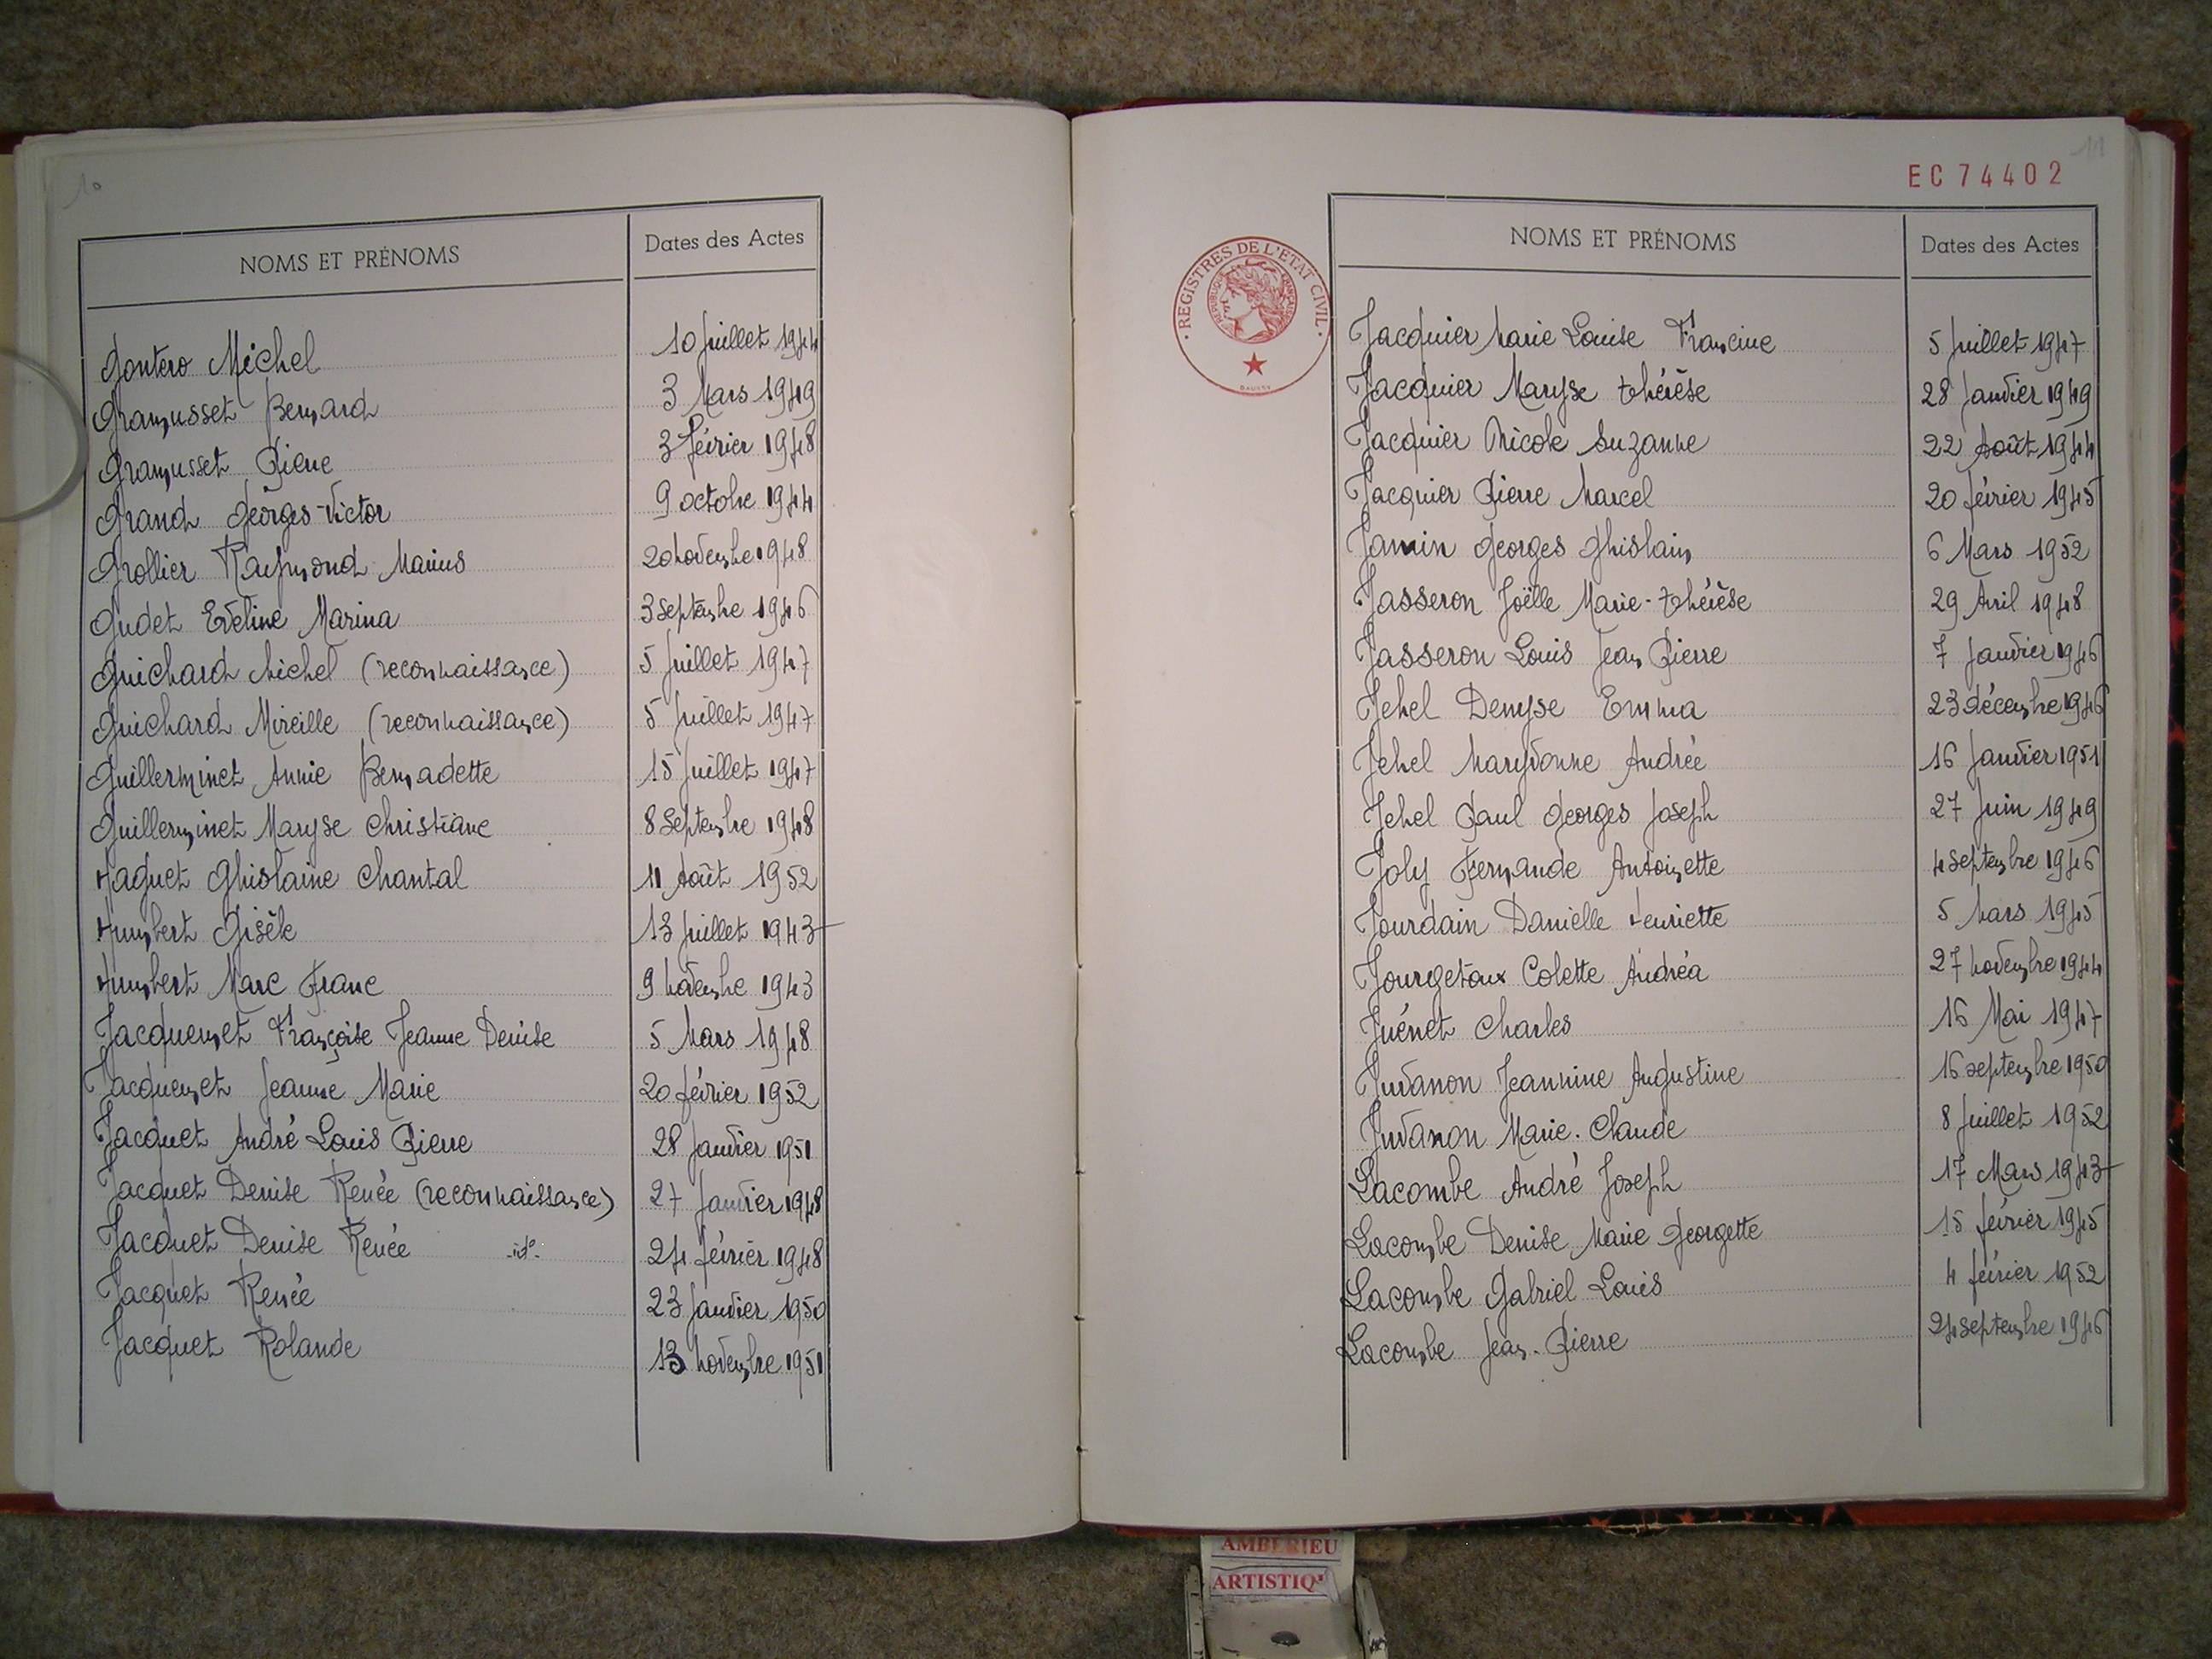 10
NOMS ET PRÉNOMS Dates des Actes
Gontero Michel 10 Juillet 1944
Gramusset Bernard 3 Mars 1949
Gramusset Pierre 3 février 1948
Grand Georges-Victor 9 octobre 1944
Grollier Raymond Marius 20 novembre 1948
Gudet Eveline Marina 3 septembre 1946
Guichard Michel (reconnaissance) 5 Juillet 1947
Guichard Mireille (reconnaissance) 5 Juillet 1947
Guillerminet Annie Bernadette 15 Juillet 1947
Guillerminet Maryse Christiane 8 Septembre 1948
Haguet Ghislaine Chantal 11 Août 1952
Humbert Gisèle 13 Juillet 1943
Humbert Marc Franc 9 novembre 1943
Jacquemet Françoise Jeanne Denise 5 Mars 1948
Jacquemet Jeanne Marie 20 février 1952
Jacquet André Louis Pierre 28 Janvier 1951
Jacquet Denise Renée (reconnaissance) 27 Janvier 1948
Jacquet Denise Renée -id°- 24 février 1948
Jacquet Renée 23 Janvier 1950
Jacquet Rolande 13 novembre 1951
11
EC 74402
REGISTRES DE L'ÉTAT CIVIL
RÉPUBLIQUE FRANÇAISE
NOMS ET PRÉNOMS Dates des Actes
Jacquier Marie Louise Francine 5 Juillet 1947
Jacquier Maryse Thérèse 28 Janvier 1949
Jacquier Nicole Suzanne 22 Août 1944
Jacquier Pierre Marcel 20 février 1945
Jamin Georges Ghislain 6 Mars 1952
Jasseron Joëlle Marie-Thérèse 29 Avril 1948
Jasseron Louis Jean Pierre 7 Janvier 1946
Jehel Denyse Emma 23 décembre 1946
Jehel Maryvonne Andrée 16 Janvier 1951
Jehel Paul Georges Joseph 27 Juin 1949
Joly Fernande Antoinette 4 septembre 1946
Jourdain Danielle Henriette 5 Mars 1945
Jourgetoux Colette Andréa 27 novembre 1944
Juénet Charles 16 Mai 1947
Juvanon Jeannine Augustine 16 septembre 1950
Juvanon Marie-Claude 8 Juillet 1952
Lacombe André Joseph 17 Mars 1943
Lacombe Denise Marie Georgette 15 février 1945
Lacombe Gabriel Louis 4 février 1952
Lacombe Jean-Pierre 24 septembre 1946
AMBERIEU
ARTISTIQ